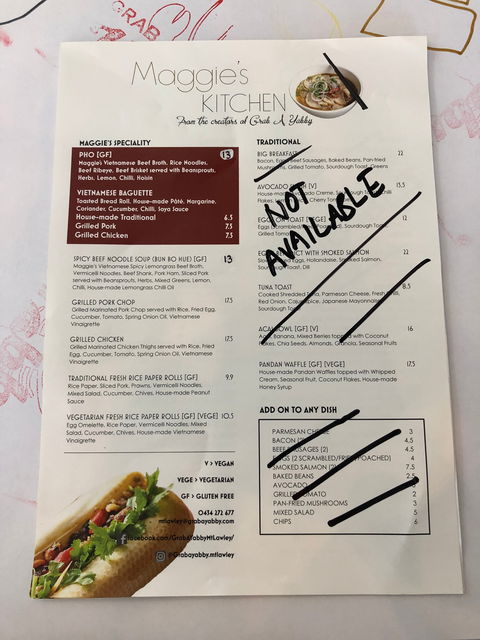 GRAB
Maggie's
KITCHEN
From the creators of Grab A Yabby
MAGGIE'S SPECIALITY
PHO [GF] 13
Maggie's Vietnamese Beef Broth, Rice Noodles,
Beef Ribeye, Beef Brisket served with Beansprouts,
Herbs, Lemon, Chilli, Hoisin
VIETNAMESE BAGUETTE
Toasted Bread Roll, House-made Pâté, Margarine,
Coriander, Cucumber, Chilli, Soya Sauce
House-made Traditional 6.5
Grilled Pork 7.5
Grilled Chicken 7.5
SPICY BEEF NOODLE SOUP (BUN BO HUE) [GF] 13
Maggie's Vietnamese Spicy Lemongrass Beef Broth,
Vermicelli Noodles, Beef Shank, Pork Ham, Sliced Pork
served with Beansprouts, Herbs, Mixed Greens, Lemon,
Chilli, House-made Lemongrass Chilli Oil
GRILLED PORK CHOP 17.5
Grilled Marinated Pork Chop served with Rice, Fried Egg,
Cucumber, Tomato, Spring Onion Oil, Vietnamese
Vinaigrette
GRILLED CHICKEN 17.5
Grilled Marinated Chicken Thighs served with Rice, Fried
Egg, Cucumber, Tomato, Spring Onion Oil, Vietnamese
Vinaigrette
TRADITIONAL FRESH RICE PAPER ROLLS [GF] 9.9
Rice Paper, Sliced Pork, Prawns, Vermicelli Noodles,
Mixed Salad, Cucumber, Chives, House-made Peanut
Sauce
VEGETARIAN FRESH RICE PAPER ROLLS [GF] [VEGE] 10.5
Egg Omelette, Rice Paper, Vermicelli Noodles, Mixed
Salad, Cucumber, Chives, House-made Vietnamese
Vinaigrette
V > VEGAN
VEGE > VEGETARIAN
GF > GLUTEN FREE
0434 272 677
mtlawley@grabayabby.com
facebook.com/GrabAYabbyMtLawley/
@Grabayabby.mtlawley
TRADITIONAL
BIG BREAKFAST 22
Bacon, Eggs, Beef Sausages, Baked Beans, Pan-fried
Mushrooms, Grilled Tomato, Sourdough Toast, Greens
AVOCADO [V] 15.5
House-made Creme, Sourdough Chilli
Flakes,
NOT
AVAILABLE
EGG ON TOAST [VEGE] 12
Eggs Sourdough Toast,
Grilled
EGG BENEDICT WITH SMOKED SALMON 22
Eggs, Hollandaise, Smoked Salmon,
Sourdough Toast, Dill
TUNA TOAST 8.5
Cooked Shredded Tuna, Parmesan Cheese, Fresh Chilli,
Red Onion, Japanese Mayonnaise,
Sourdough Toast
ACAI BOWL [GF] [V] 16
Acai, Banana, Mixed Berries topped with Coconut
Flakes, Chia Seeds, Almonds, Granola, Seasonal Fruits
PANDAN WAFFLE [GF] [VEGE] 17.5
House-made Pandan Waffles topped with Whipped
Cream, Seasonal Fruit, Coconut Flakes, House-made
Honey Syrup
ADD ON TO ANY DISH
PARMESAN CHEESE 3
BACON (2) 4.5
BEEF SAUSAGES (2) 4.5
EGGS (2 SCRAMBLED/FRIED/POACHED) 4
SMOKED SALMON (2) 7.5
BAKED BEANS 2.5
AVOCADO
GRILLED TOMATO 2
PAN-FRIED MUSHROOMS 3
MIXED SALAD 5
CHIPS 6